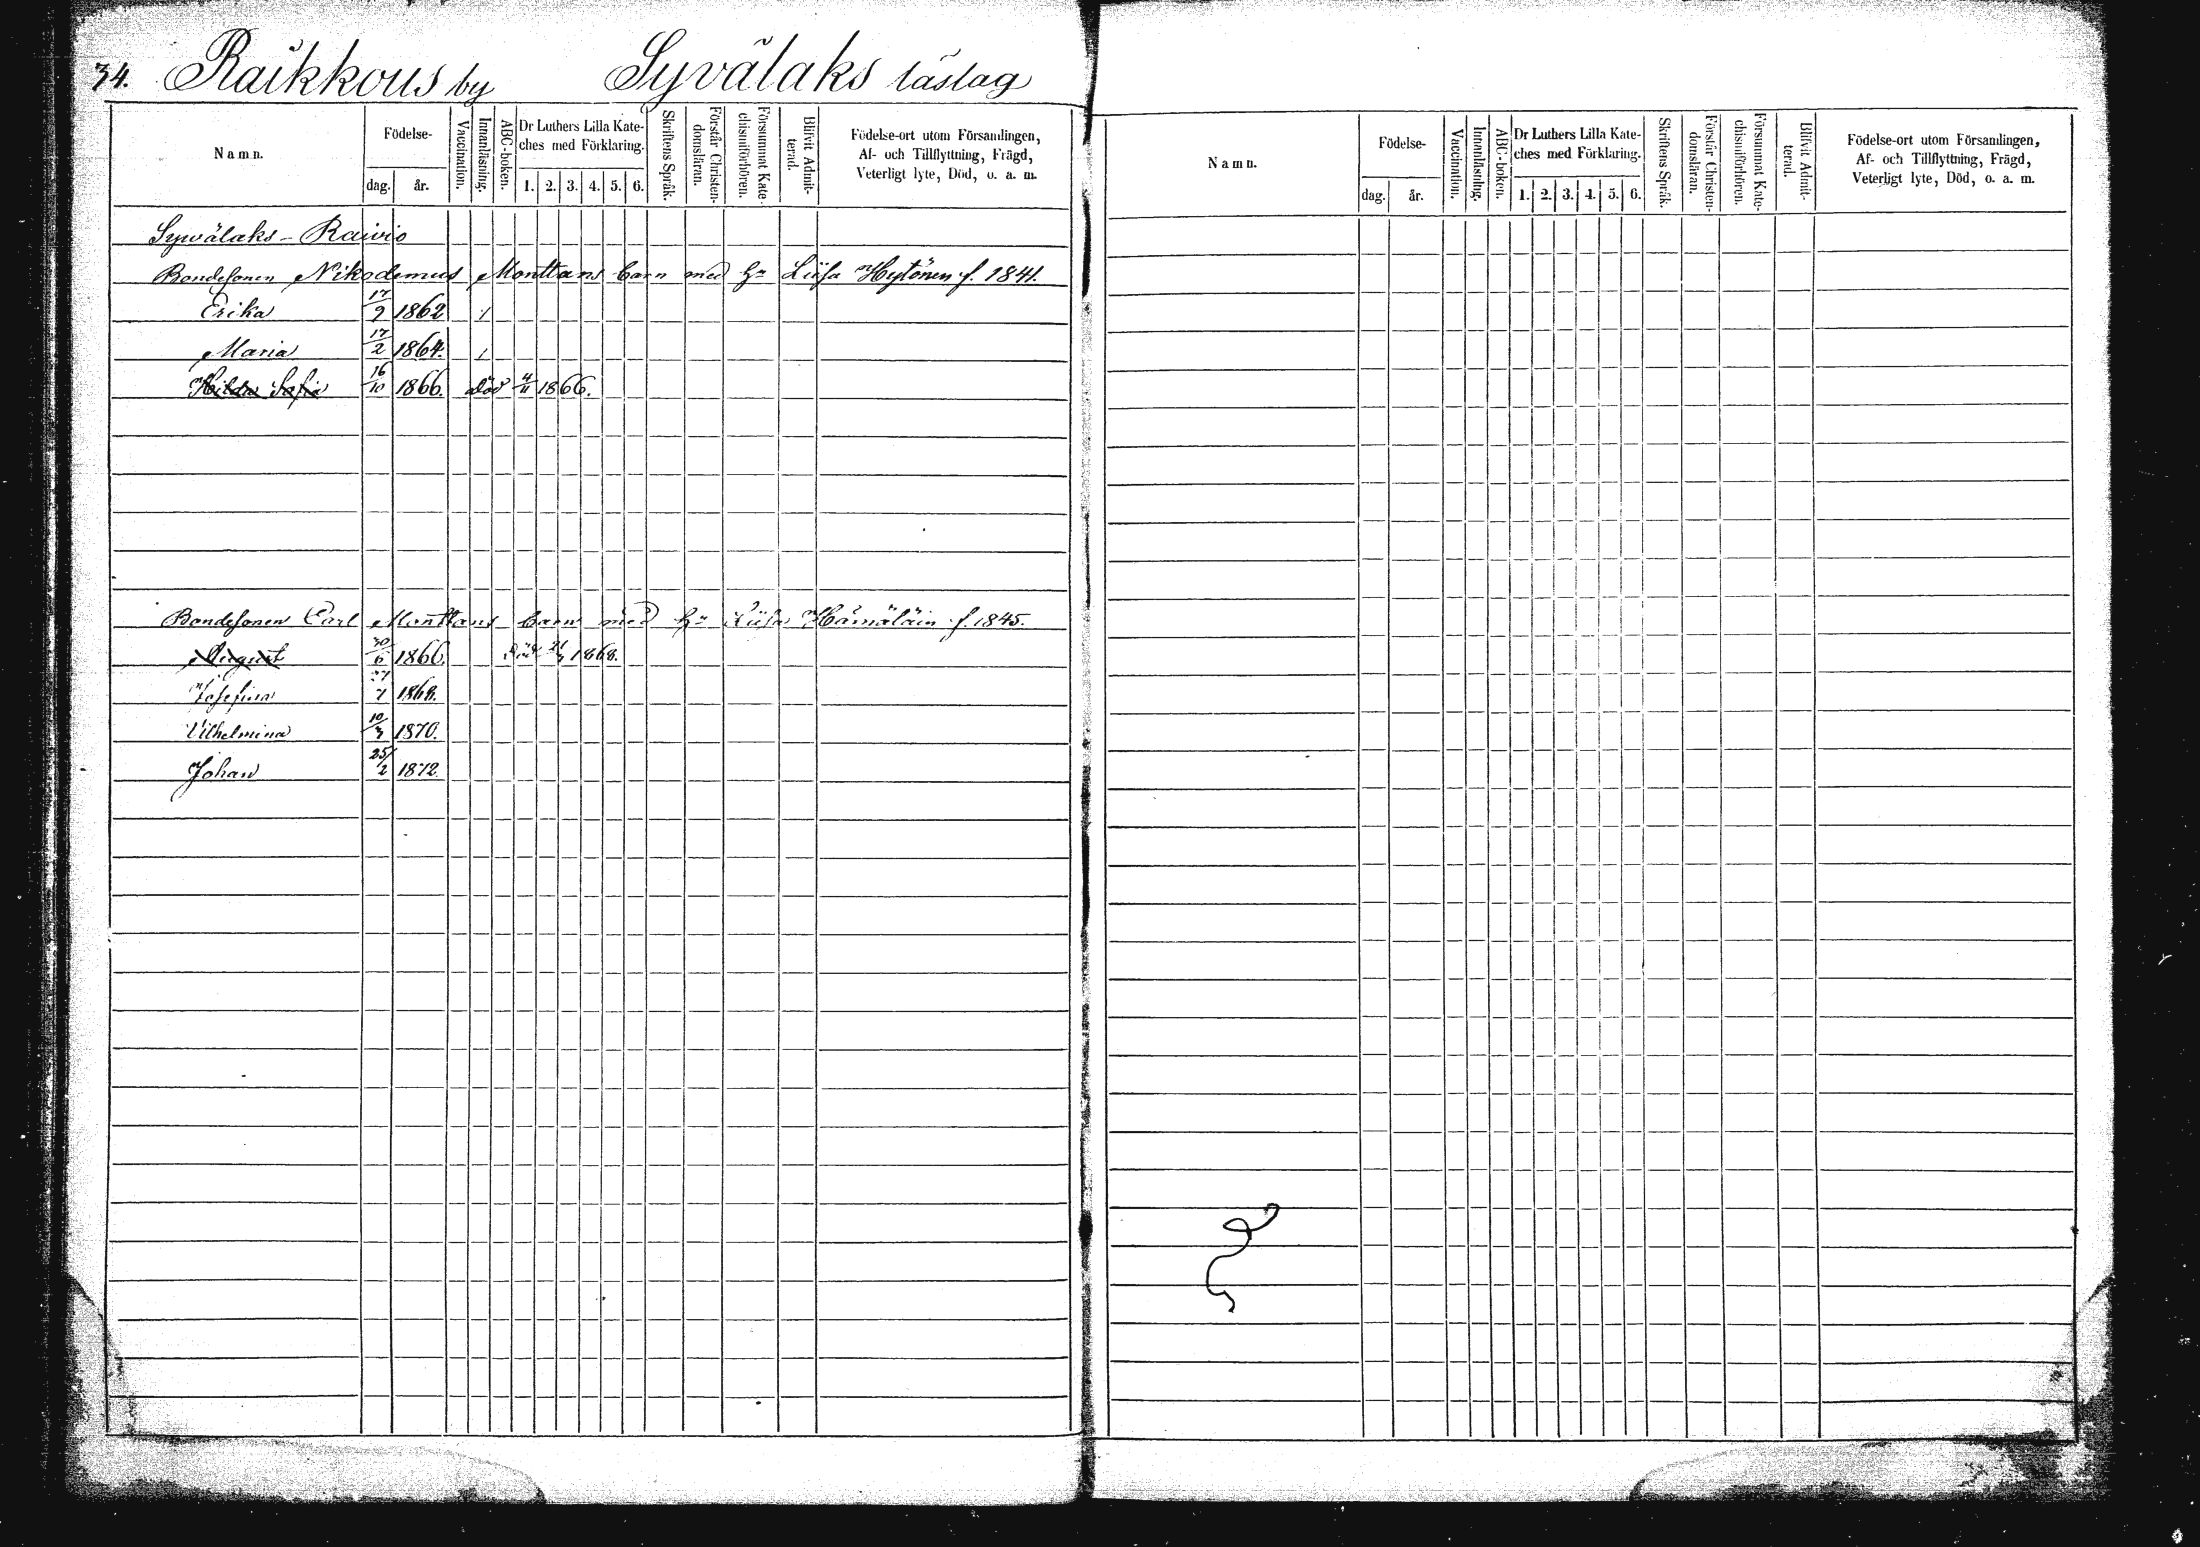 34. Räikkous by Syvälaks läslag
Namn.
Födelse-
dag. år.
Vaccination.
Innanläsning.
ABC-boken.
Dr Luthers Lilla Kate-
ches med Förklaring.
1. 2. 3. 4. 5. 6.
Skriftens Språk.
Förstår Christen-
domsläran.
Försummat Kate-
chismiförhören.
Blifvit Admit-
terad.
Födelse-ort utom Församlingen,
Af- och Tillflyttning, Frägd,
Veterligt lyte, Död, o. a. m.
Syvälaks - Raivio
Bondesonen Nikodemus Monttans barn med h:u Liisa Hytönen f. 1841.
Erika 17/9 1862 /
Maria 17/2 1864. /
Hilda Sofia 16/10 1866. död 4/11 1866.
Bondesonen Carl Monttans barn med h:u Liisa Hämäläin f. 1845.
August 30/6 1866. Död 1868.
Josefina 1868.
Vilhelmina 10/3 1870.
Johan 25/2 1872.
Namn.
Födelse-
dag. år.
Vaccination.
Innanläsning.
ABC-boken.
Dr Luthers Lilla Kate-
ches med Förklaring.
1. 2. 3. 4. 5. 6.
Skriftens Språk.
Förstår Christen-
domsläran.
Försummat Kate-
chismiförhören.
Blifvit Admit-
terad.
Födelse-ort utom Församlingen,
Af- och Tillflyttning, Frägd,
Veterligt lyte, Död, o. a. m.